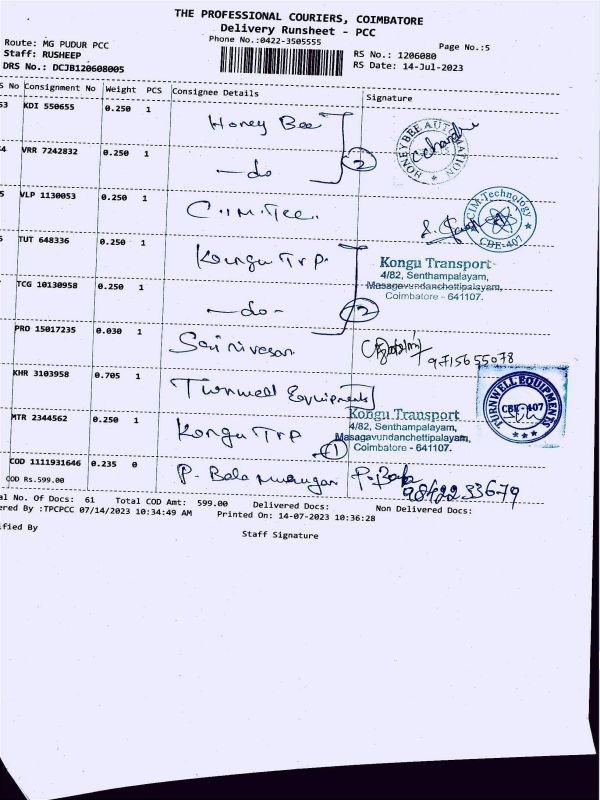 THE PROFESSIONAL COURIERS, COIMBATORE
Delivery Runsheet - PCC
Phone No.:0422-3505555
Page No.:5
Route: MG PUDUR PCC
RS No.: 1206080
Staff: RUSHEEP
RS Date: 14-Jul-2023
DRS No.: DCJB120608005
S No Consignment No Weight PCS Consignee Details Signature
53 KDI 550655 0.250 1 Honey Bee
HONEYBEE AUTOMATION
4 VRR 7242832 0.250 1 -do 2
5 VLP 1130053 0.250 1 C.I.M.Tec.
CIM-Technology
CBE-407
6 TUT 648336 0.250 1 Kongu Trp.
Kongu Transport
4/82, Senthampalayam,
Masagavundanchettipalayam,
Coimbatore - 641107.
TCG 10130958 0.250 1 -do- 2
PRO 15017235 0.030 1 Srinivasan 9715655078
KHR 3103958 0.705 1 Turnwell Equipments
TURNWELL EQUIPMENTS
CBE-407
MTR 2344562 0.250 1 Kongu Trp 1
Kongu Transport
4/82, Senthampalayam,
Masagavundanchettipalayam,
Coimbatore - 641107.
COD 1111931646 0.235 0 P. Bala murugan P. Bala
COD Rs.599.00 9842233679
al No. Of Docs: 61 Total COD Amt: 599.00 Delivered Docs: Non Delivered Docs:
ered By :TPCPCC 07/14/2023 10:34:49 AM Printed On: 14-07-2023 10:36:28
ified By
Staff Signature